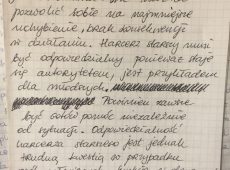 pozwolić sobie na najmniejsze
uchybienie, brak konsekwencji
w działaniu. Harcerz starszy musi
być odpowiedzialny ponieważ staje
się autorytetem, jest przykładem
dla młodszych.
Powinien zawsze
być gotów pomóc niezależnie
od sytuacji. Odpowiedzialność
harcerza starszego jest jednak
trudną kwestią w przypadku